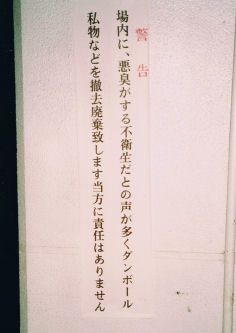 警告
場内に、悪臭がする不衛生だとの声が多くダンボール
私物などを撤去廃棄致します当方に責任はありません